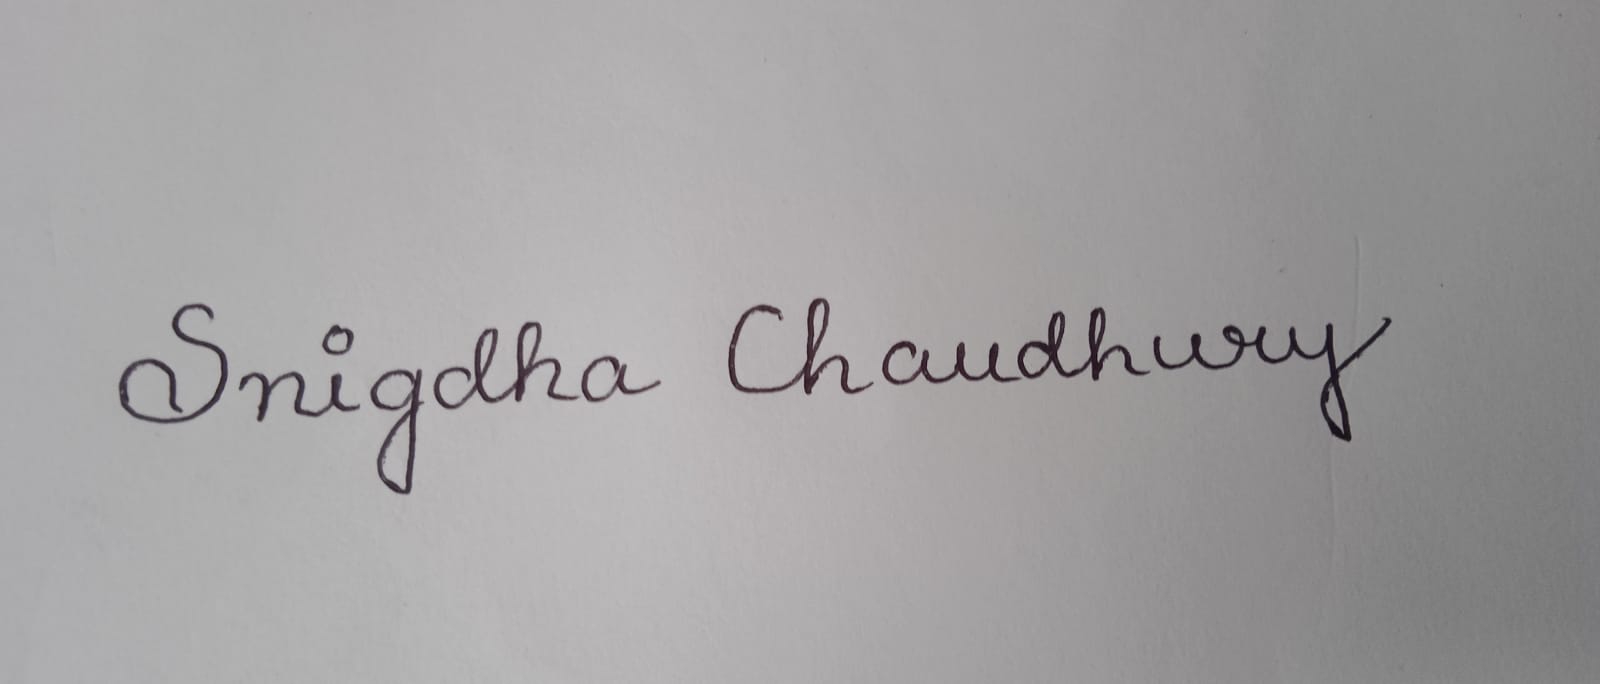 Snigdha Chaudhury